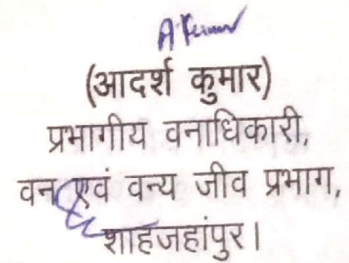 (आदर्श कुमार)
प्रभागीय वनाधिकारी,
वन एवं वन्य जीव प्रभाग,
शाहजहांपुर।